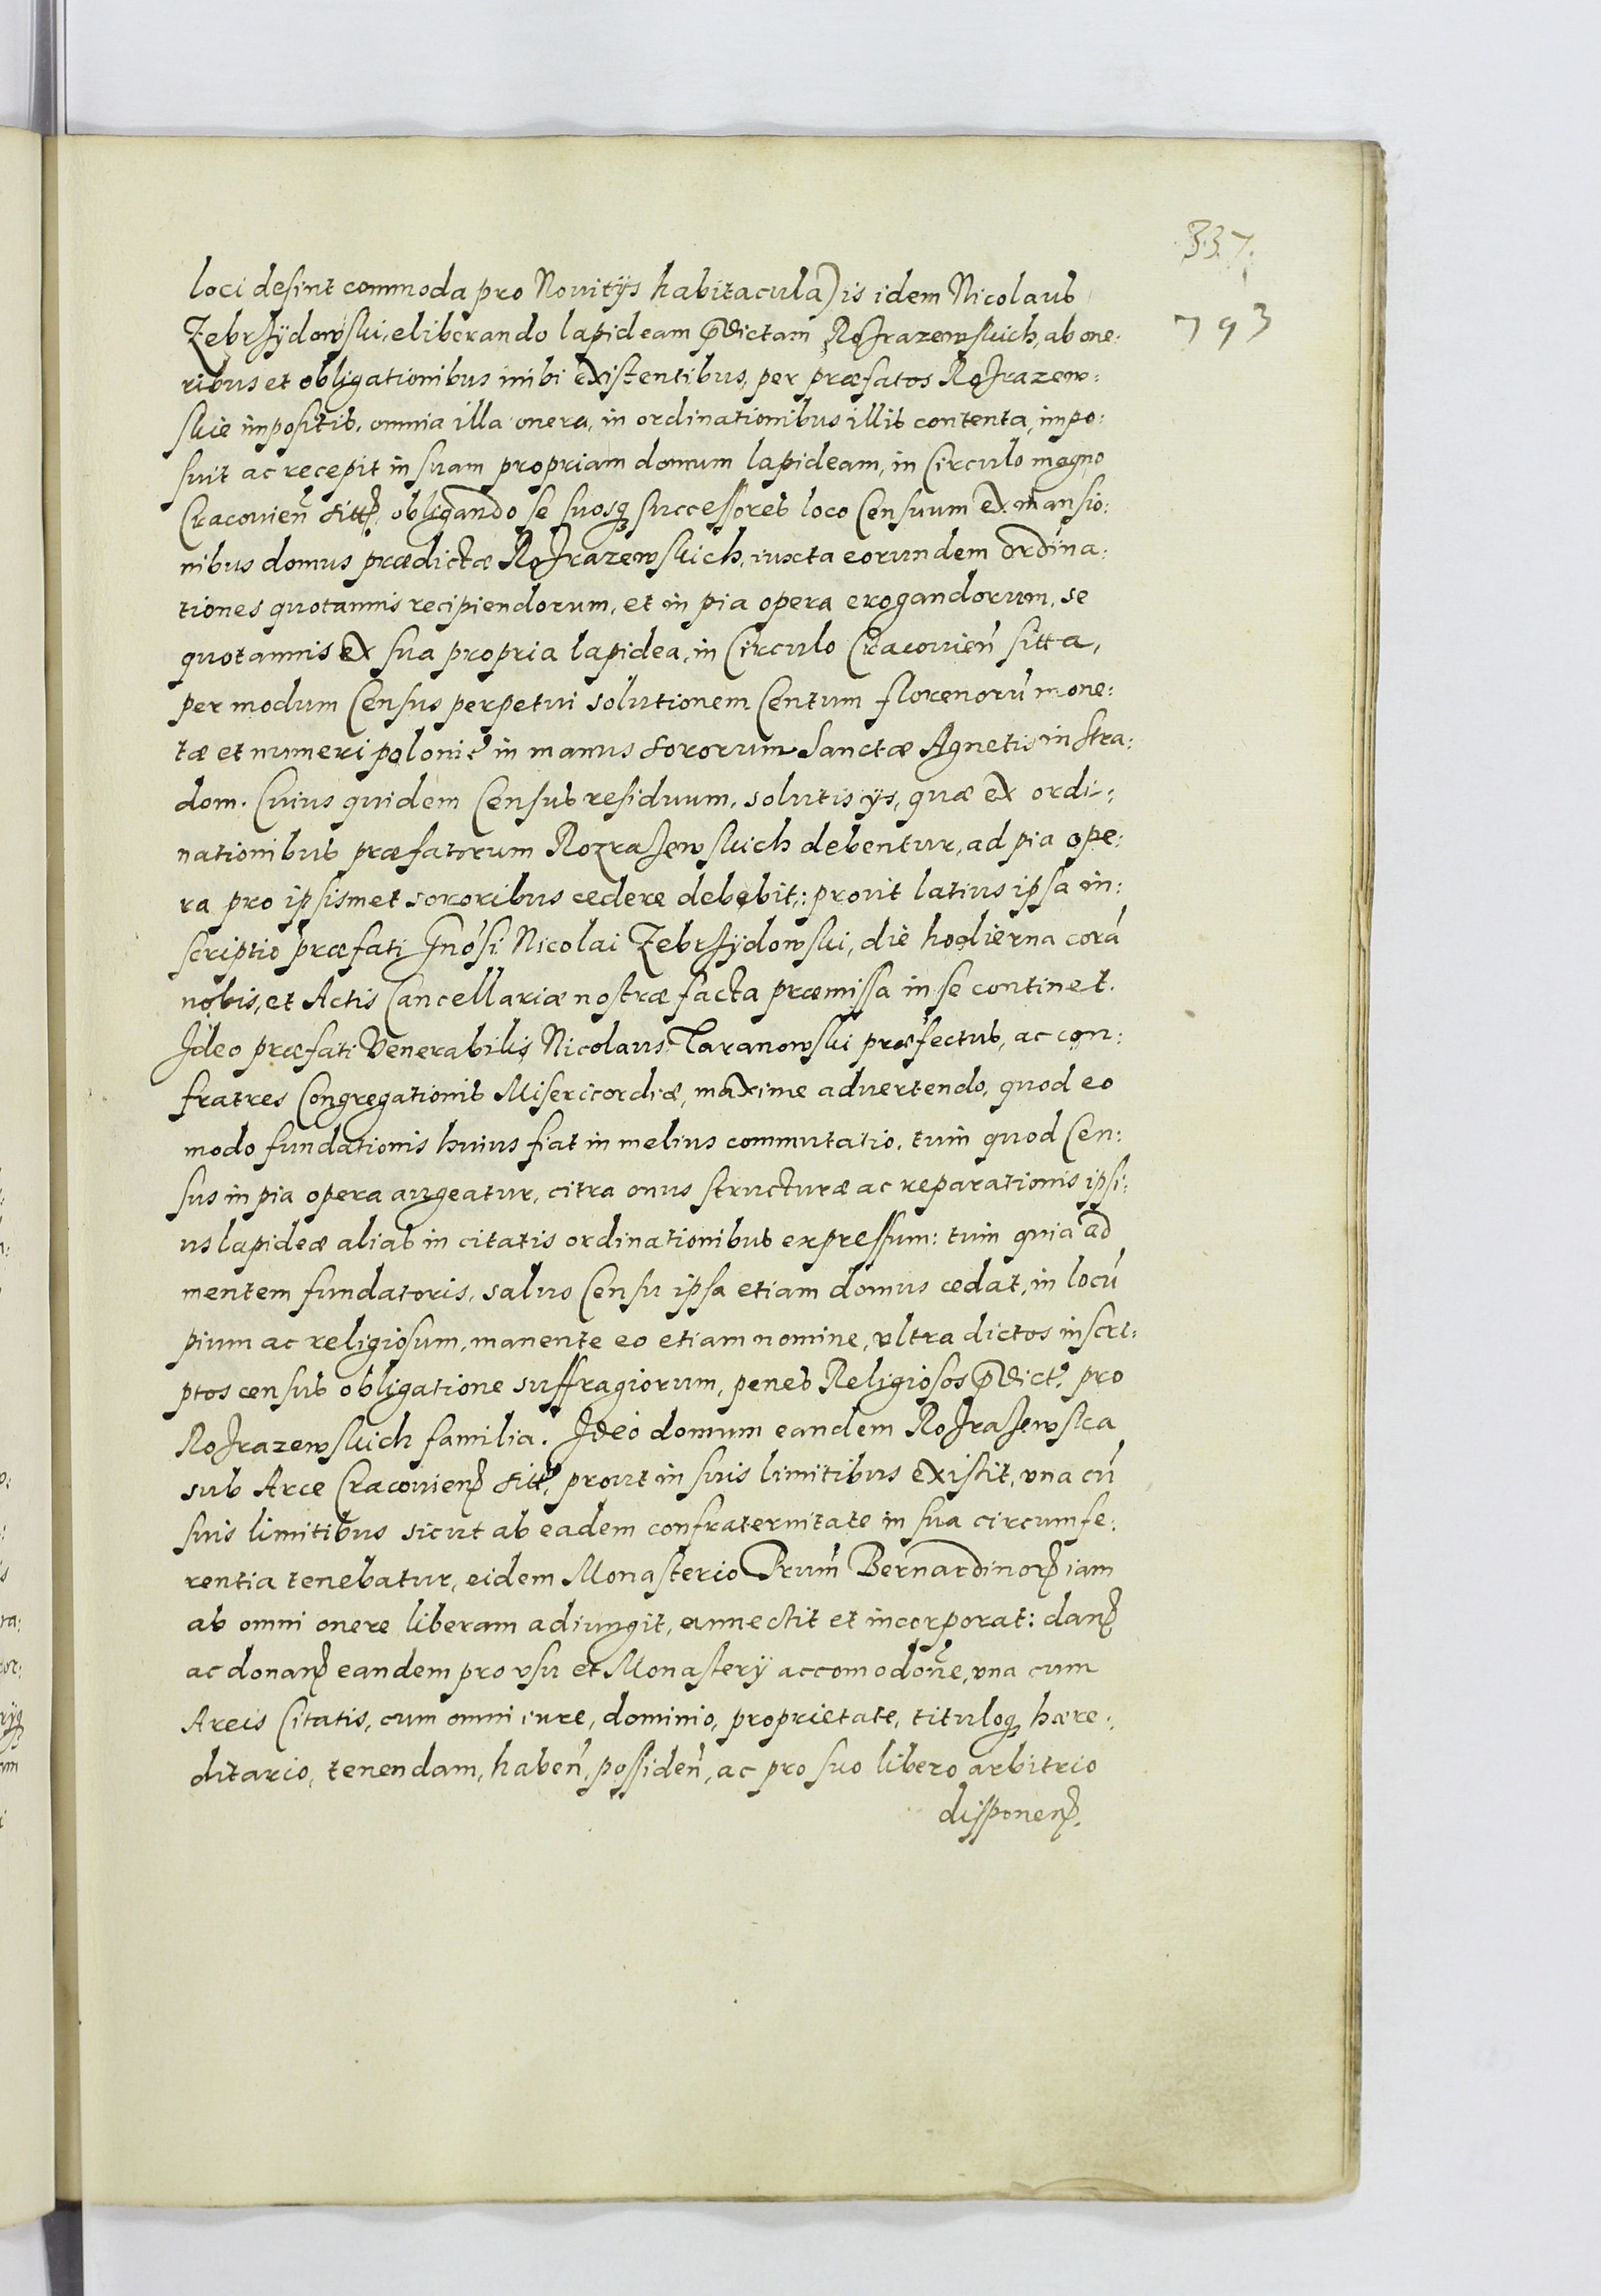 337.
793
loci desint commoda pro Nouitijs habitacula) is idem Nicolaus
Zebrzÿdowski, eliberando lapideam p̄dictam Rozrazewskich, ab one:
ribus et obligationibus inibi existentibus, per præfatos Rozrazew:
skie impositis, omnia illa onera, in ordinationibus illis contenta, impo:
suit ac recepit in suam propriam domum lapideam, in Circulo magno
Cracouien̄ sitt, obligando se suosq3 successores loco Censuum ex mansio:
nibus domus prædictæ Rozrazewskich, iuxta eorundem ordina:
tiones quotannis recipiendorum, et in pia opera erogandorum, se
quotannis ex sua propria lapidea, in Circulo Cracouien̄ sitta,
per modum Census perpetui solutionem Centum florenorū mone:
tæ et numeri polonic̄ in manus sororum Sanctæ Agnetis in Stra:
dom. Cuius quidem Census residuum, solutis ijs, quæ ex ordi:
nationibus præfatorum Rozrasewskich debentur, ad pia ope:
ra pro ipsismet sororibus cedere debebit: prout latius ipsa in:
scriptio præfati Gnōsi Nicolai Zebrzÿdowski, die hodierna corā
nobis, et Actis Cancellariæ nostræ facta præmissa in se continet.
Ideo præfati Venerabilis Nicolaus Taranowski præfectus, ac con:
fratres Congregationis Misericordiæ, maxime aduertendo, quod eo
modo fundationis huius fiat in melius commutatio, tum quod Cen:
sus in pia opera augeatur, citra onus structuræ ac reparationis ipsi:
us lapideæ alias in citatis ordinationibus expressum: tum quia ad
mentem fundatoris, saluo Censu ipsa etiam domus cedat, in locū
pium ac religiosum, manente eo etiam nomine, vltra dictos inscri:
ptos census obligatione suffragiorum, penes Religiosos p̄dict. pro
Rozrazewskich familia. Ideo domum eandem Rozrasewska
sub Arce Cracouien sitt, prout in suis limitibus existit, vna cū
suis limitibus sicut ab eadem confraternitate in sua circumfe:
rentia tenebatur, eidem Monasterio Prum̄ Bernardinor iam
ab omni onere liberam adiungit, annectit et incorporat: dan
ac donan eandem pro vsu et Monasterÿ accomodōne, vna cum
Areis Citatis, cum omni iure, dominio, proprietate, tituloq3 hære:
ditario, tenendam, haben̄, possiden̄, ac pro suo libero arbitrio
disponen.